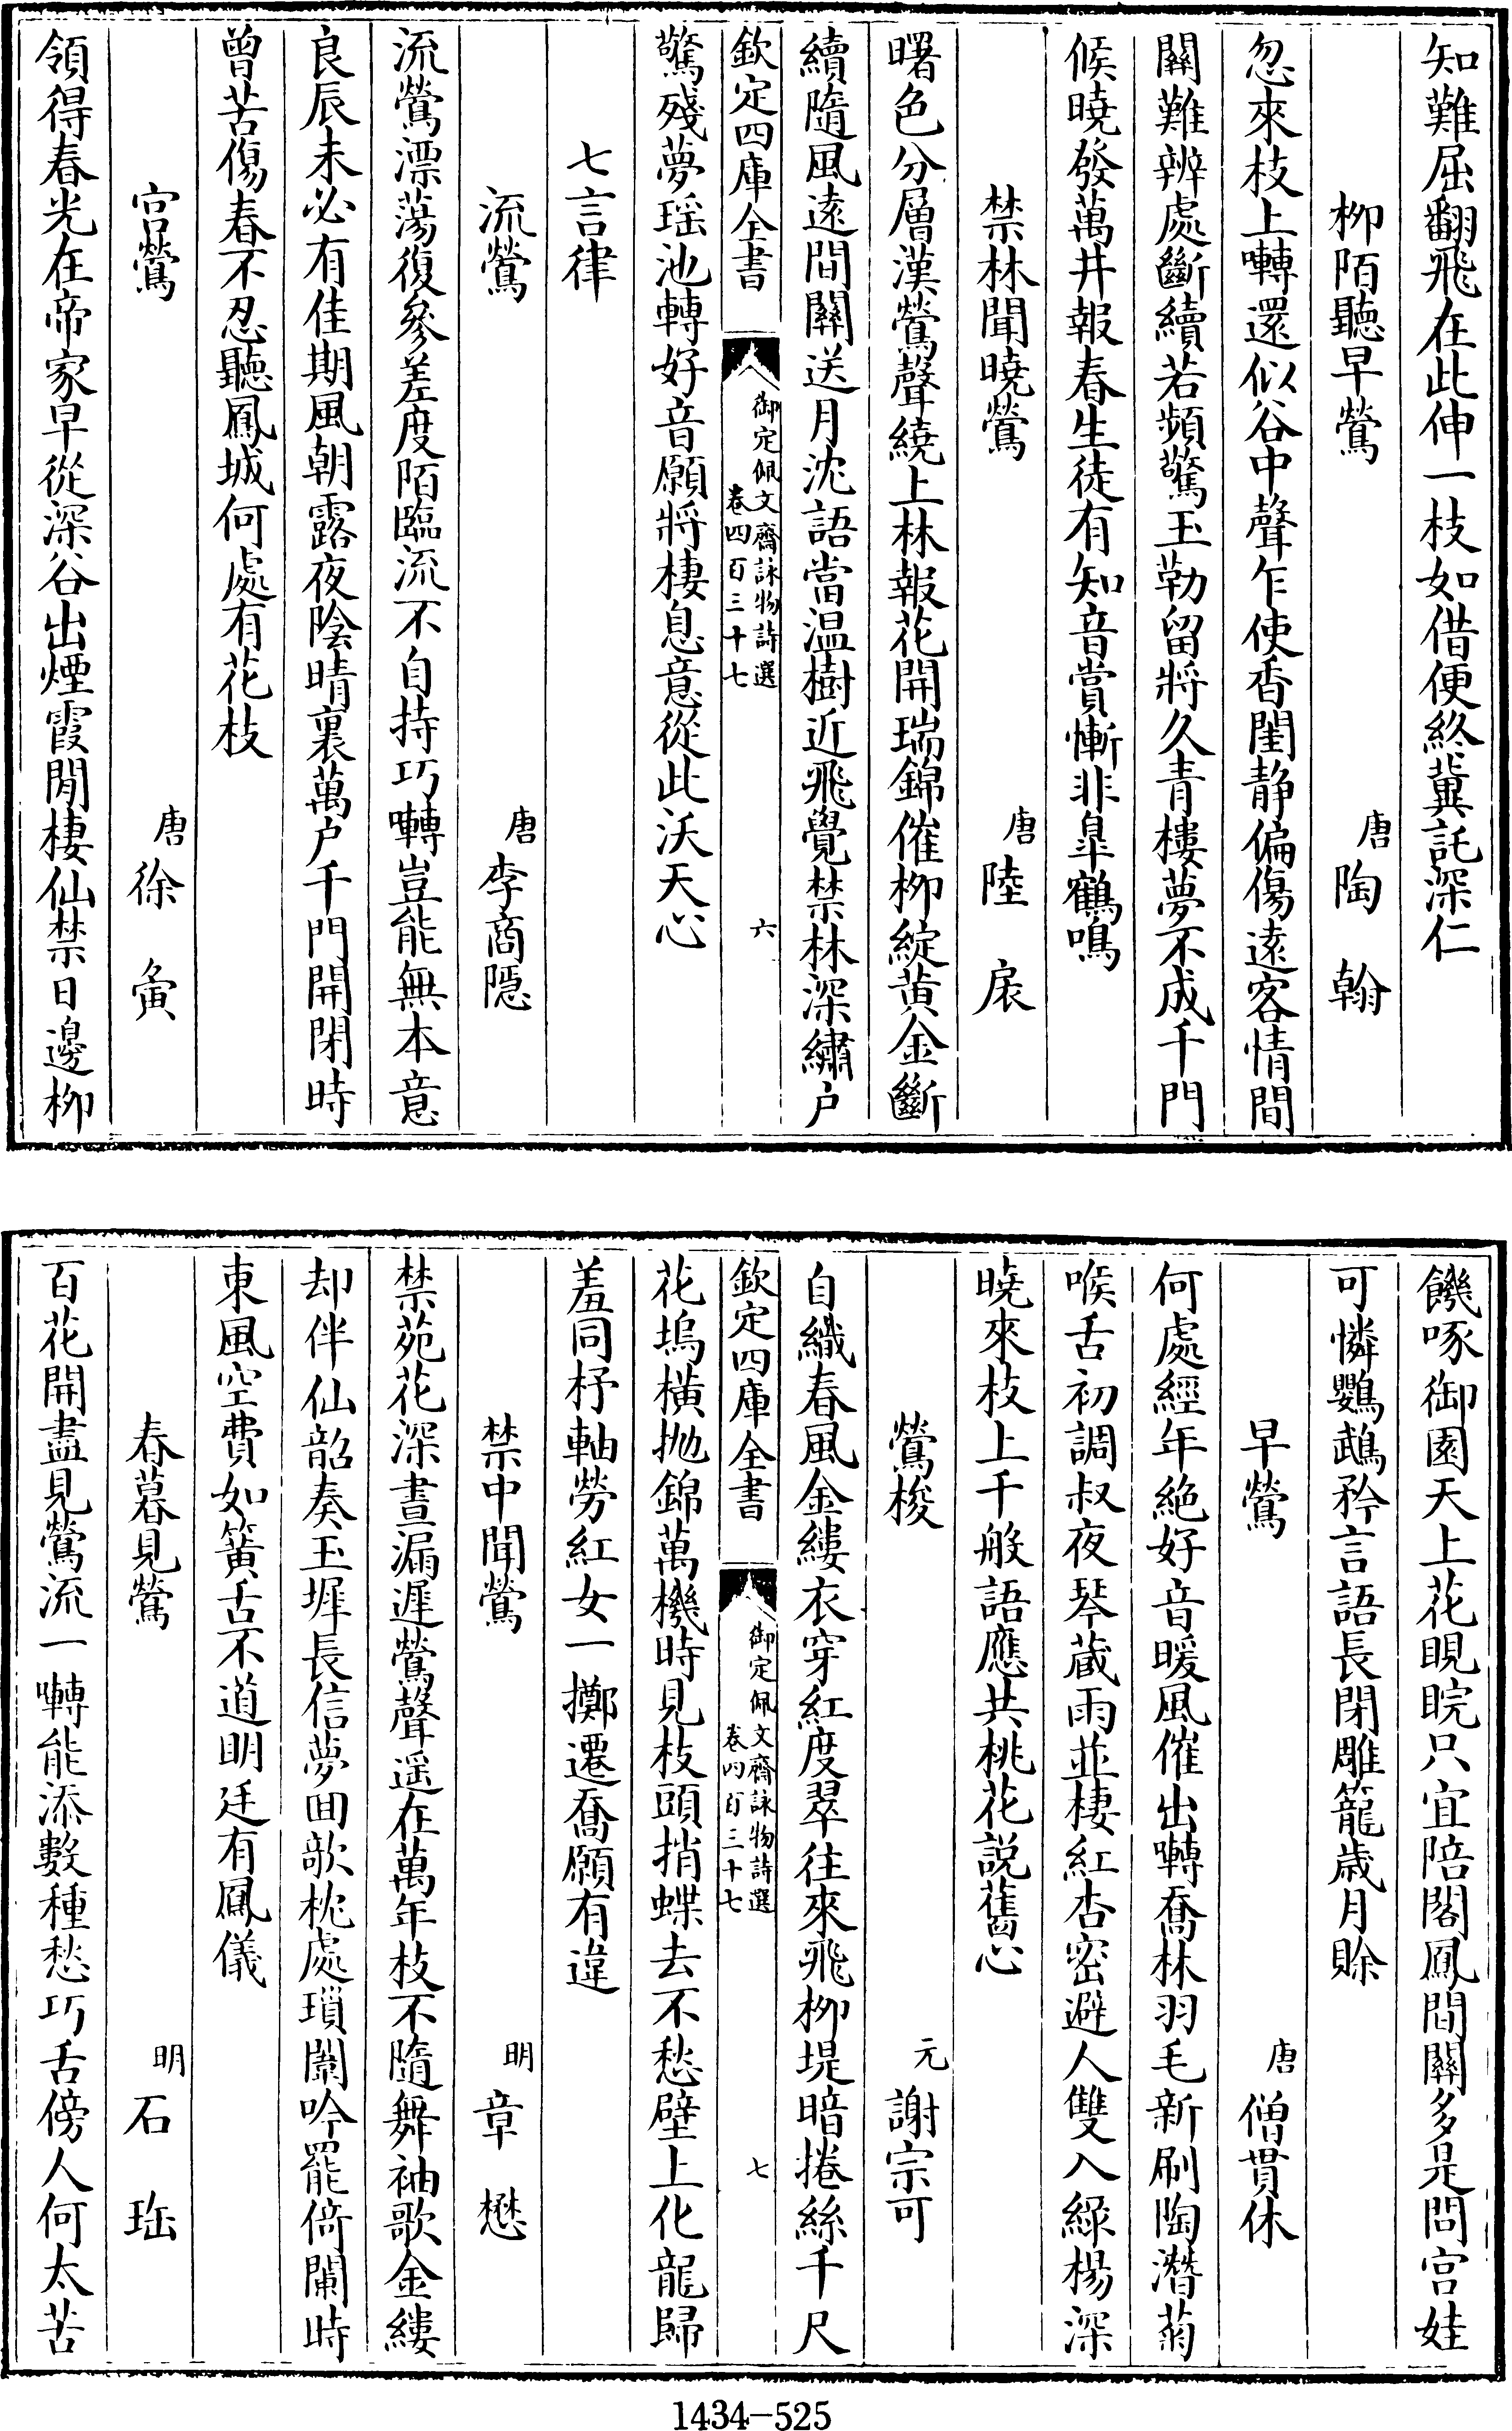 知難屈翻飛在此伸一枝如借便終冀託深仁
柳陌聽早鶯 唐 陶翰
忽來枝上囀還似谷中聲乍使香閨静偏傷遠客情間
關難辨處斷續若頻驚玉勒留將久青樓夢不成千門
候曉發萬井報春生徒有知音賞慚非臯鶴鳴
禁林聞曉鶯 唐 陸扆
曙色分層漢鶯聲繞上林報花開瑞錦催柳綻黄金斷
續隨風遠間關送月沈語當温樹近飛覺禁林深繡户
欽定四庫全書 御定佩文齋詠物詩選 卷四百三十七 六
驚殘夢瑶池轉好音願將棲息意從此沃天心
七言律
流鶯 唐 李商隱
流鶯漂蕩復參差度陌臨流不自持巧囀豈能無本意
良辰未必有佳期風朝露夜陰晴裏萬户千門開閉時
曾苦傷春不忍聽鳳城何處有花枝
宫鶯 唐 徐夤
領得春光在帝家早從深谷出煙霞閒棲仙禁日邊柳
饑啄御園天上花睍睆只宜陪閣鳳間關多是問宫娃
可憐鸚鵡矜言語長閉雕籠歲月賒
早鶯 唐 僧貫休
何處經年絶好音暖風催出囀喬林羽毛新刷陶潛菊
喉舌初調叔夜琴藏雨並棲紅杏密避人雙入緑楊深
曉來枝上千般語應共桃花説舊心
鶯梭 元 謝宗可
自織春風金縷衣穿紅度翠往來飛柳堤暗捲絲千尺
欽定四庫全書 御定佩文齋詠物詩選 卷四百三十七 七
花塢横抛錦萬機時見枝頭捎蝶去不愁壁上化龍歸
羞同杼軸勞紅女一擲遷喬願有違
禁中聞鶯 明 章懋
禁苑花深晝漏遲鶯聲遥在萬年枝不隨舞袖歌金縷
却伴仙韶奏玉墀長信夢囬欹枕處瑣闈吟罷倚闌時
東風空費如簧舌不道明廷有鳳儀
春暮見鶯 明 石珤
百花開盡見鶯流一囀能添數種愁巧舌傍人何太苦
1434-525